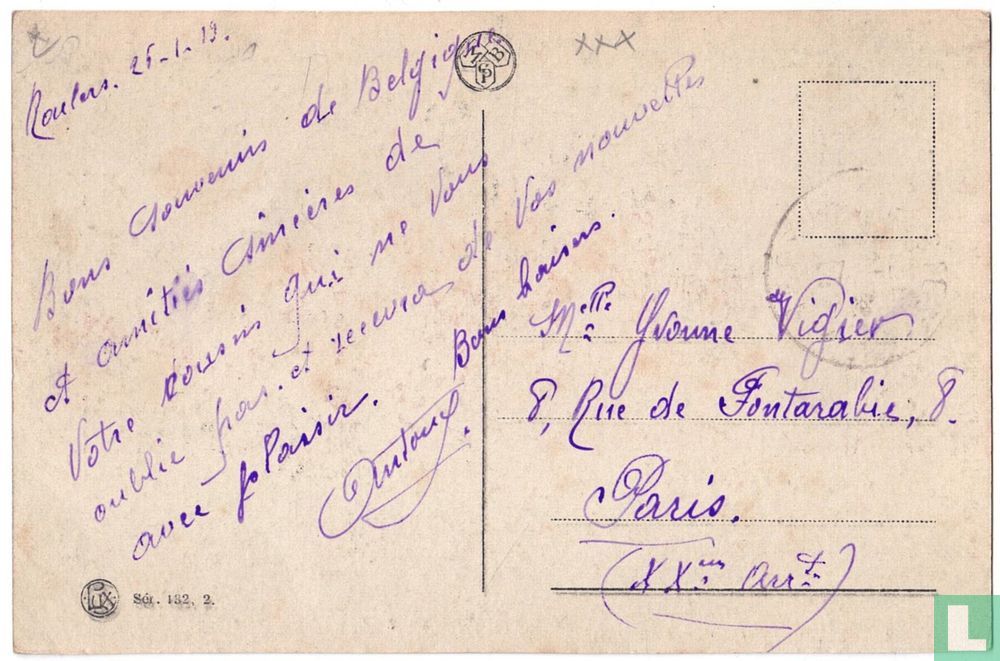 Roulers. 25-1-19.
Bons souvenirs de Belgique
et amitiés sincères de
Votre cousin qui ne Vous
oublie pas. et recevra de Vos nouvelles
avec plaisir. Bons baisers.
Antony.
xxx
MTB
Melle Yvonne Vigier
8, Rue de Fontarabie, 8.
Paris.
(XXme Arrt)
LUX
Sér. 132, 2.
L